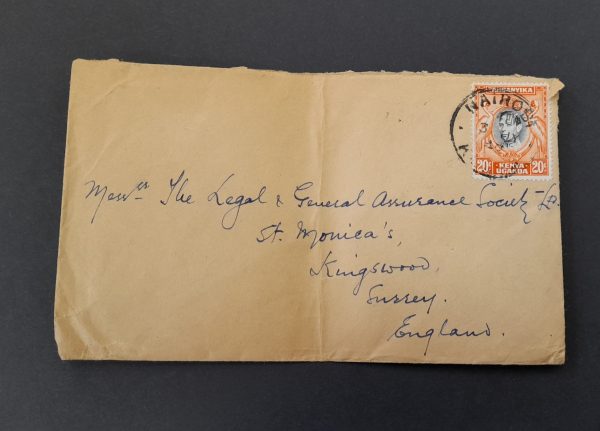 NAIROBI
TANGANYIKA
20c KENYA UGANDA 20c
Messrs The Legal & General Assurance Society Ld.
St. Monica's,
Kingswood,
Surrey.
England.